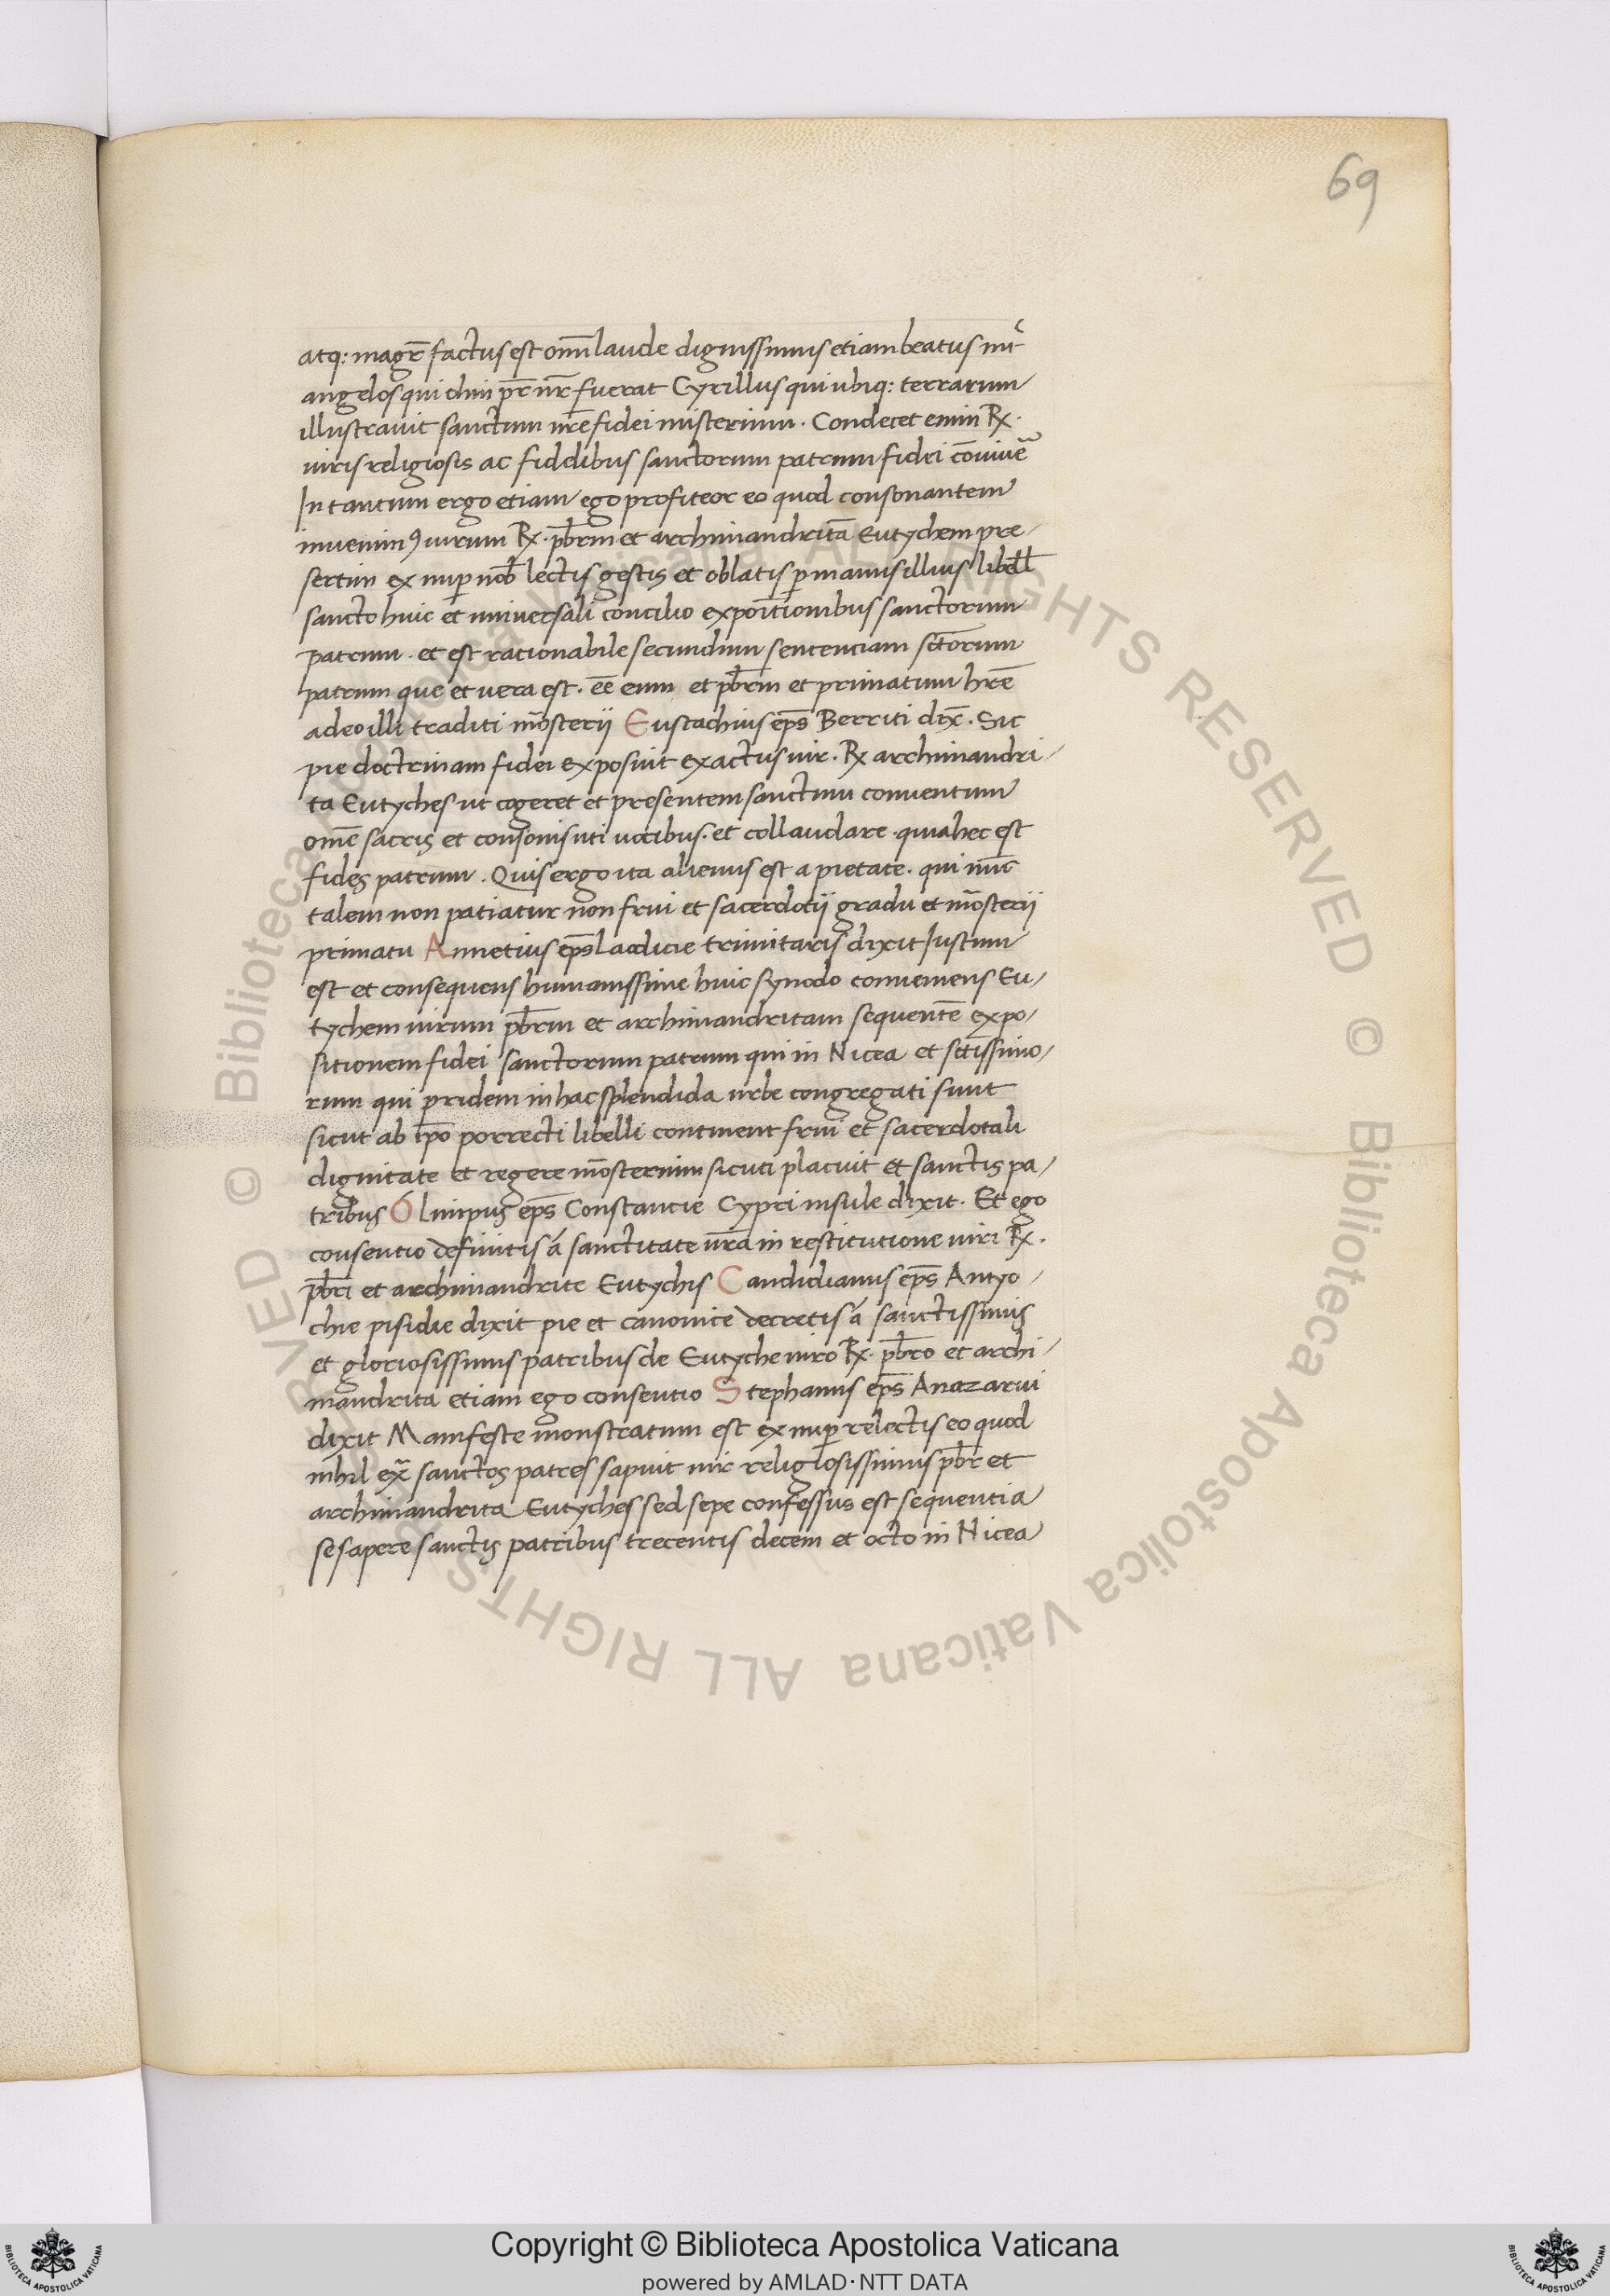 69
atq: magr̄ factus est om̄i laude dignissimus etiam beatus int̾
angelos qui olim pr̄ nr̄ fuerat Cyrillus qui ubiq: terrarum
illustravit sanctum nr̄e fidei misterium. Condecet enim Rx.
viris religiosis ac fidelibus sanctorum patrum fidei
In tantum ergo etiam ego profiteor eo quod consonantem
invenimꝰ virum Rx. pb̄rm et archimandritā Eutychem pre-
sertim ex nuꝑ nob̄ lectis gestis et oblatis ꝑ manus illius libell̄
sancto huic et universali concilio expoitionibus sanctorum
patrum. et est rationabile secundum sentenciam sc̄torum
patrum que et vera est. ēē eum et pb̄rm et primatum hr̄e
adeo illi traditi mōsterii Eustachius ep̄s Berriti dix̄. Sic
pie doctrinam fidei exposuit exactus vir. Rx archimandri-
ta Eutyches ut cogeret et presentem sanctum conventum
om̄e sacris et consonis uti vocibus. et collaudare. quia hec est
fides patrum. Quis ergo ita alienus est a pietate. qui nūc
talem non patiatur non frui et sacerdotii gradu et mōsterii
primatu Annetius ep̄s laodicie trimitaris dixit Justum
est et consequens humanissime huic synodo conveniens Eu-
tychem virum pb̄rm et archimandritam sequentē expo-
sitionem fidei sanctorum patrum qui in Nicea et sc̄tissimo-
rum qui pridem in hac splendida urbe congregati sunt
sicut ab ip̄o porrecti libelli continent frui et sacerdotali
dignitate et regere mōsterium sicuti placuit et sanctis pa-
tribus Olimpus ep̄s Constancie Cypri insule dixit. Et ego
consentio definitis á sanctitate vr̄a in restitutione viri Rx.
pb̄ri et archimandrite Eutychis Candidianus ep̄s Antyo-
chie pisidie dixit pie et canonice decretis á sanctissimis
et gloriosissimis patribus de Eutyche viro Rx. pb̄ro et archi-
mandrita etiam ego consentio Stephanus ep̄s Anazarvi
dixit Manifeste monstratum est ex nuꝑ relectis eo quod
nihil ex̄ sanctos patres sapuit vir religiosissimus pb̄r et
archimandrita Eutyches sed sepe confessus est sequentia
se sapere sanctis patribus trecentis decem et octo in Nicea
© Biblioteca Apostolica Vaticana ALL RIGHTS RESERVED © Biblioteca Apostolica Vaticana ALL RIGHTS RESERVED
Copyright © Biblioteca Apostolica Vaticana
powered by AMLAD·NTT DATA
BIBLIOTECA APOSTOLICA VATICANA
BIBLIOTECA APOSTOLICA VATICANA